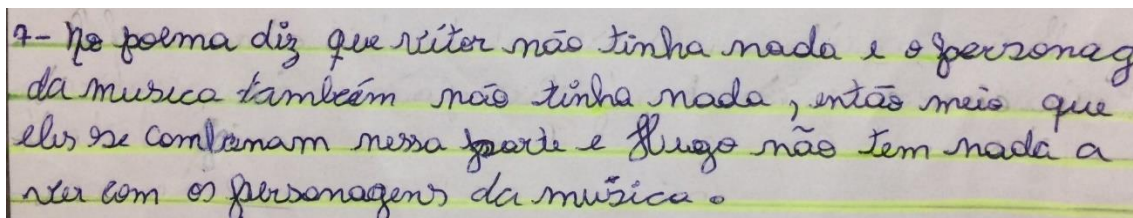 7- No poema diz que vítor não tinha nada e o personag
da musica também não tinha nada, então meio que
eles se combinam nessa parte e Hugo não tem nada a
ver com os personagens da música.